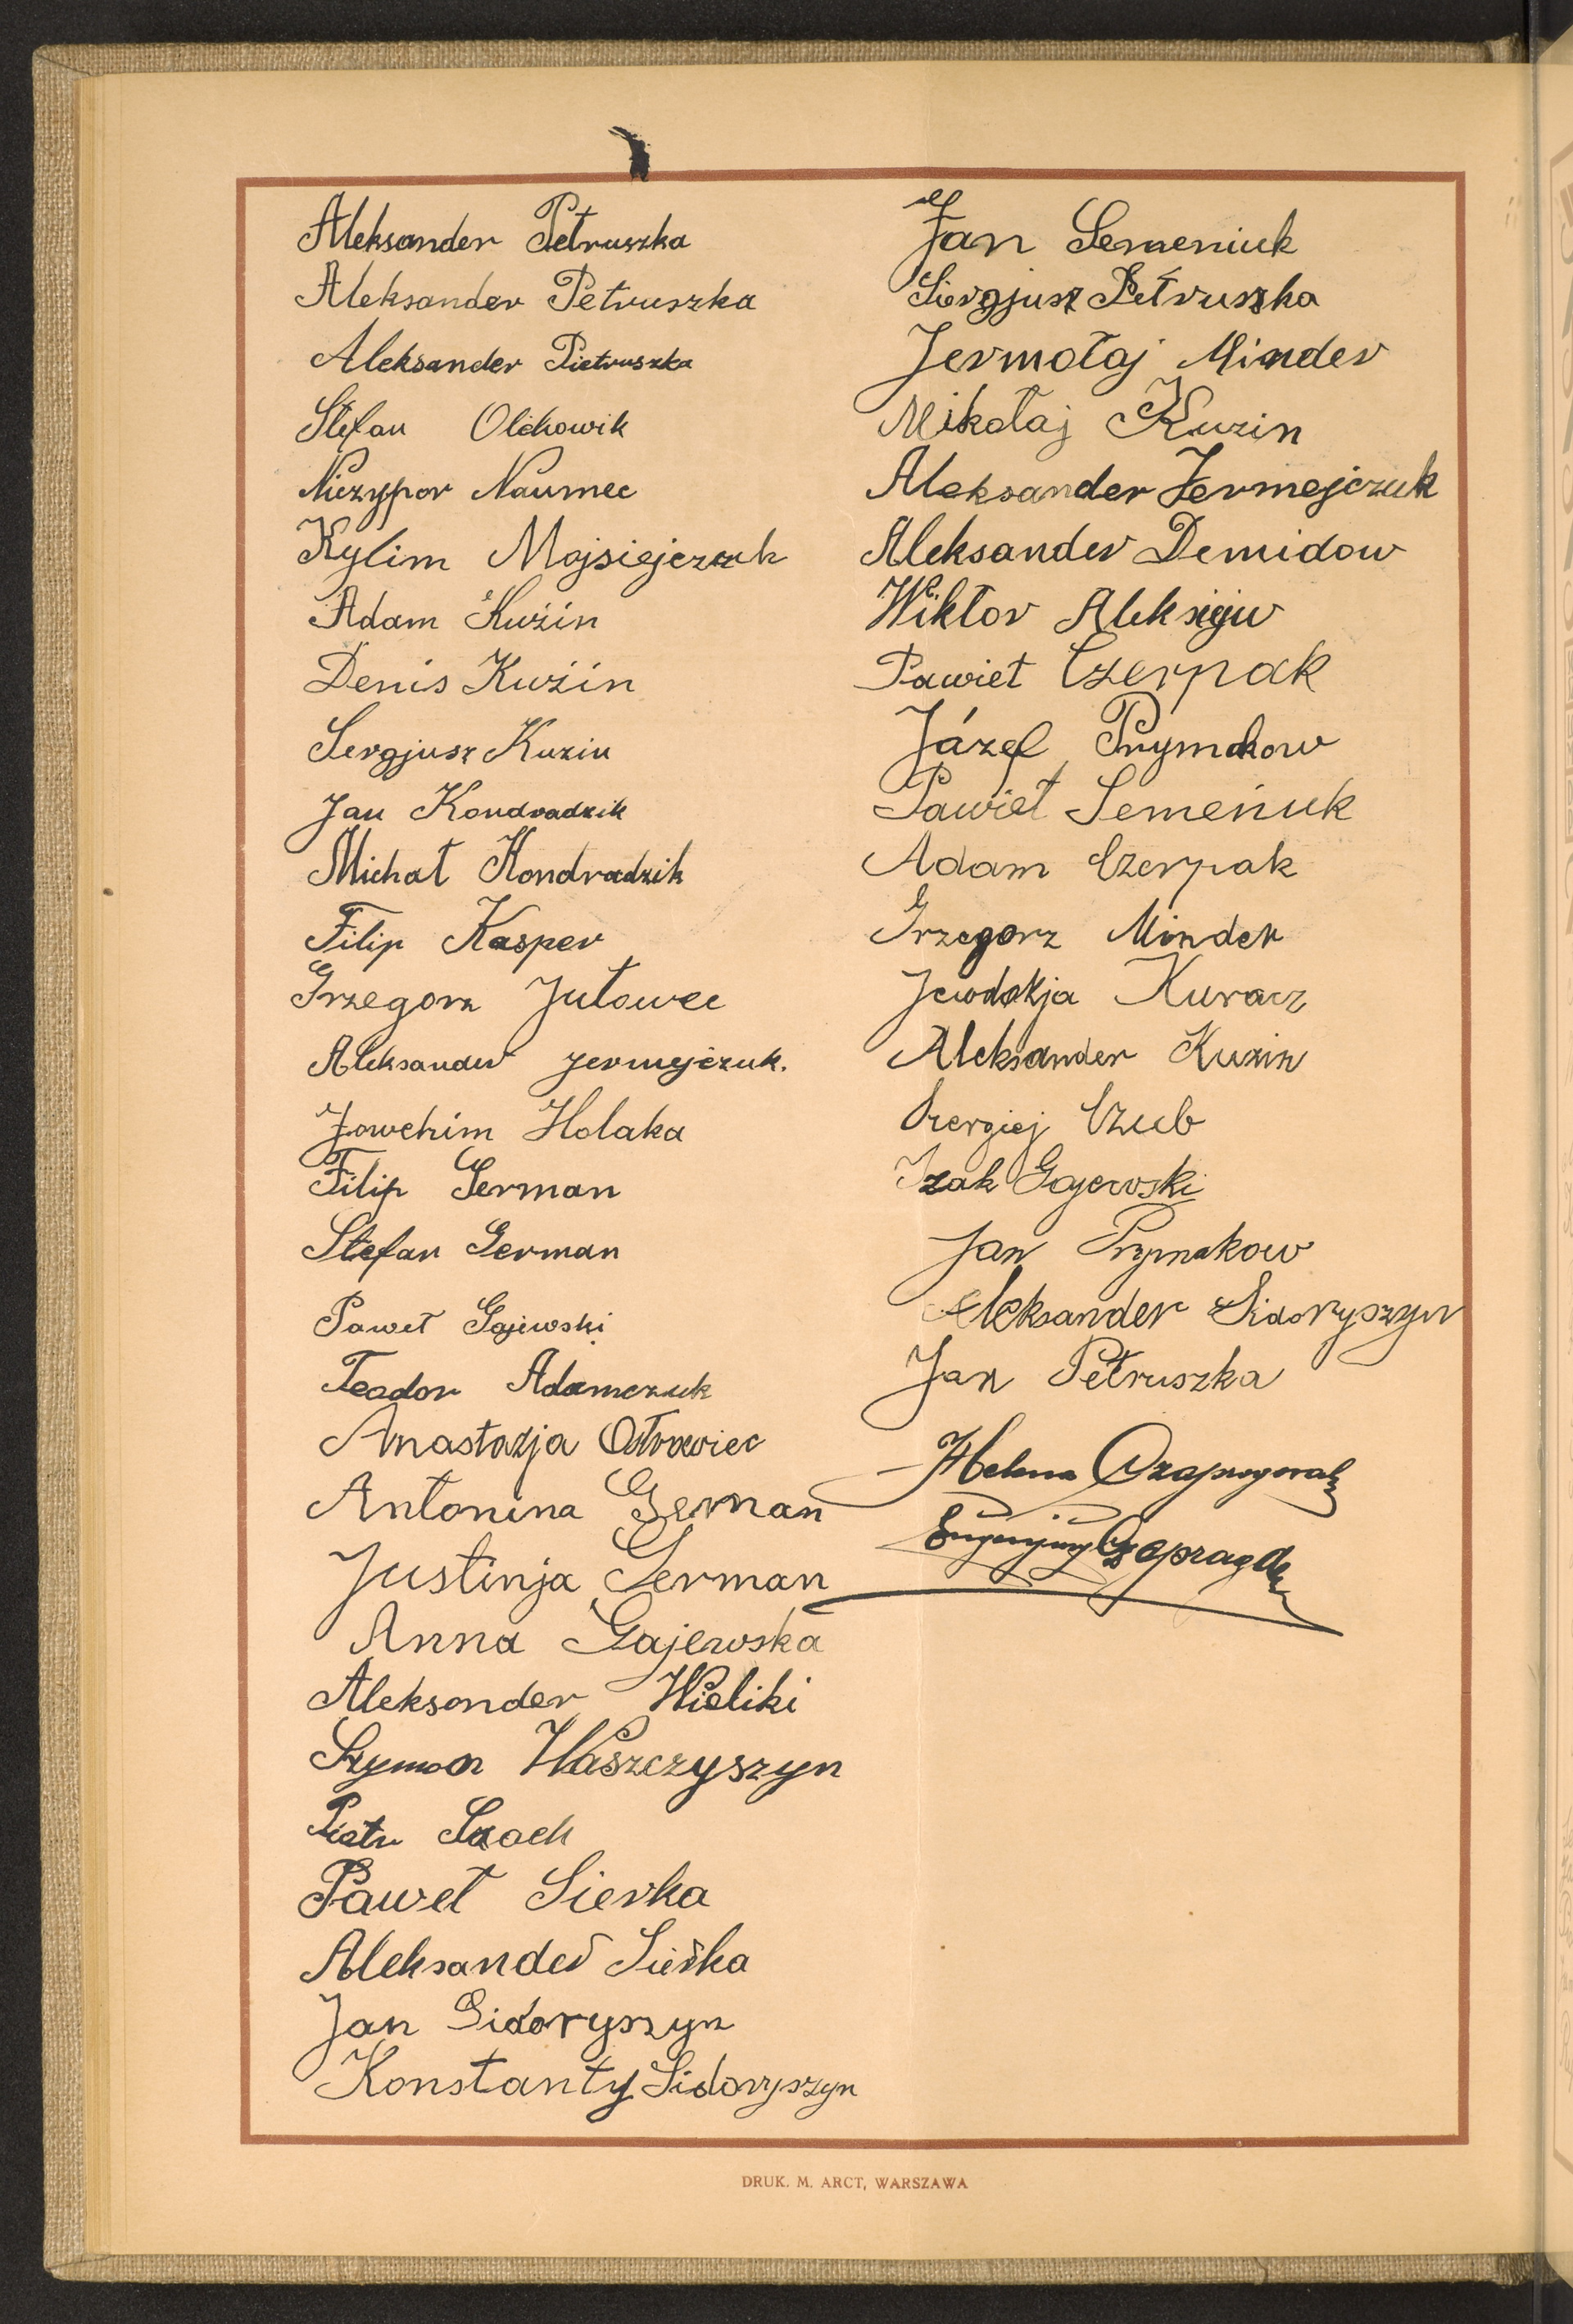 Aleksander Petruszka
Aleksander Petruszka
Aleksander Pietruszka
Stefan Olichowik
Niczypor Naumec
Kylim Mojsiejczuk
Adam Kuźin
Denis Kuźin
Sergjusz Kuzin
Jan Kondradzik
Michał Kondradzik
Filip Kasper
Grzegorz Jutowec
Aleksander Jermejczuk.
Jowchim Holaka
Filip German
Stefan German
Paweł Gajewski
Teodor Adamczuk
Anastazja Ostrowiec
Antonina German
Justinja German
Anna Gajewska
Aleksander Wieliki
Szymon Waszczyszyn
Piotr Szach
Paweł Sierka
Aleksander Sierka
Jan Sidoryszyn
Konstanty Sidoryszyn
Jan Semeniuk
Siergjusz Petruszka
Jermołaj Minder
Mikołaj Kuzin
Aleksander Jermejczuk
Aleksander Demidow
Wiktor Aleksiejw
Pawieł Czerpak
Józef Prymakow
Pawieł Semeniuk
Adam Czerpak
Grzegorz Minder
Jewdokja Kuracz
Aleksander Kuzin
Siergiej Czub
Izak Gajewski
Jan Prymakow
Aleksander Sidoryszyn
Jan Petruszka
Helena
DRUK. M. ARCT, WARSZAWA